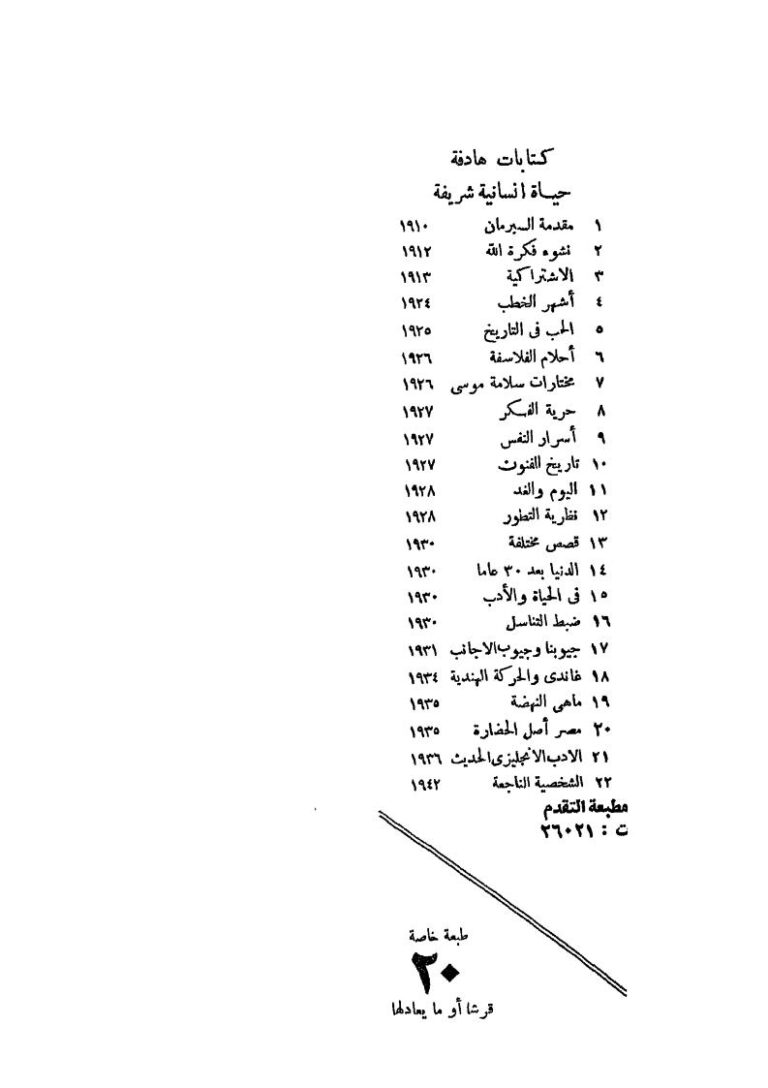 كتابات هادفة
حياة انسانية شريفة
١ مقدمة السبرمان ١٩١٠
٢ نشوء فكرة الله ١٩١٢
٣ الاشتراكية ١٩١٣
٤ أشهر الخطب ١٩٢٤
٥ الحب فى التاريخ ١٩٢٥
٦ أحلام الفلاسفة ١٩٢٦
٧ مختارات سلامة موسى ١٩٢٦
٨ حرية الفكر ١٩٢٧
٩ أسرار النفس ١٩٢٧
١٠ تاريخ الفنون ١٩٢٧
١١ اليوم والغد ١٩٢٨
١٢ نظرية التطور ١٩٢٨
١٣ قصص مختلفة ١٩٣٠
١٤ الدنيا بعد ٣٠ عاما ١٩٣٠
١٥ فى الحياة والأدب ١٩٣٠
١٦ ضبط التناسل ١٩٣٠
١٧ جيوبنا وجيوب الاجانب ١٩٣١
١٨ غاندى والحركة الهندية ١٩٣٤
١٩ ماهى النهضة ١٩٣٥
٢٠ مصر أصل الحضارة ١٩٣٥
٢١ الادب الانجليزى الحديث ١٩٣٦
٢٢ الشخصية الناجعة ١٩٤٢
مطبعة التقدم
ت : ٢٦٠٢١
طبعة خاصة
٢٠
قرشا أو ما يعادلها